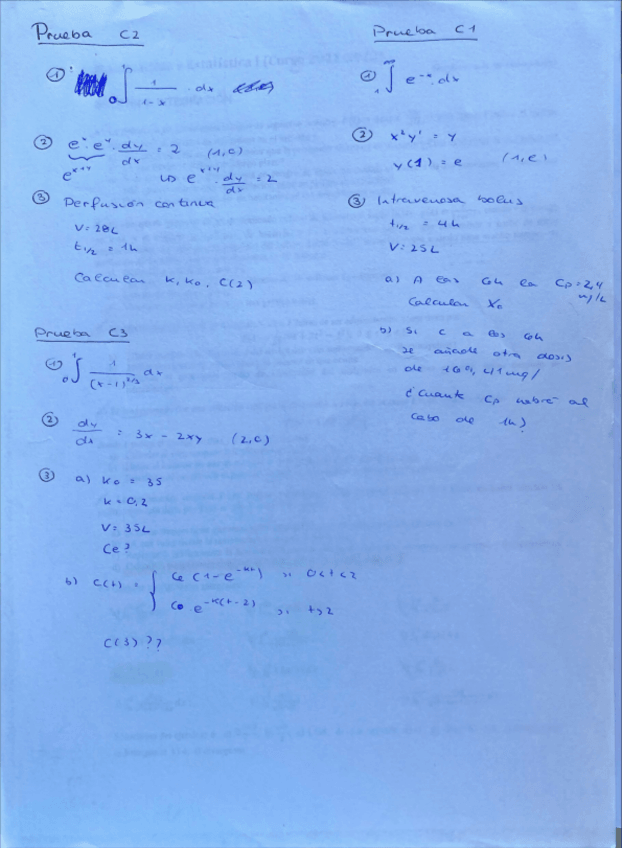 Prueba C2
① ∫₀¹ 1/(1-x) · dx
② eˣ · eʸ · dy/dx = 2 (1,0)
e^(x+y) ↳ e^(x+y) · dy/dx = 2
③ Perfusión continua
V = 28L
t₁/₂ = 1h
Calcular K, K₀, C(2)
Prueba C3
① ∫₀¹ 1/(x-1)^(2/3) dx
② dy/dx = 3x - 2xy (2,0)
③ a) K₀ = 35
K = 0,2
V = 35L
Ce?
b) C(t) = { Ce (1-e^(-Kt)) si 0<t<2
C₀ e^(-K(t-2)) si t>2
C(3)??
Prueba C1
① ∫₁^∞ e^(-x) · dx
② x²y' = y
y(1) = e (1,e)
③ Intravenosa bolus
t₁/₂ = 4h
V = 25L
a) A las 6h la Cp = 2,4
Calcular X₀
b) Si a las 6h
se añade otra dosis
de
¿Cuanta Cp habrá al
cabo de 1h?